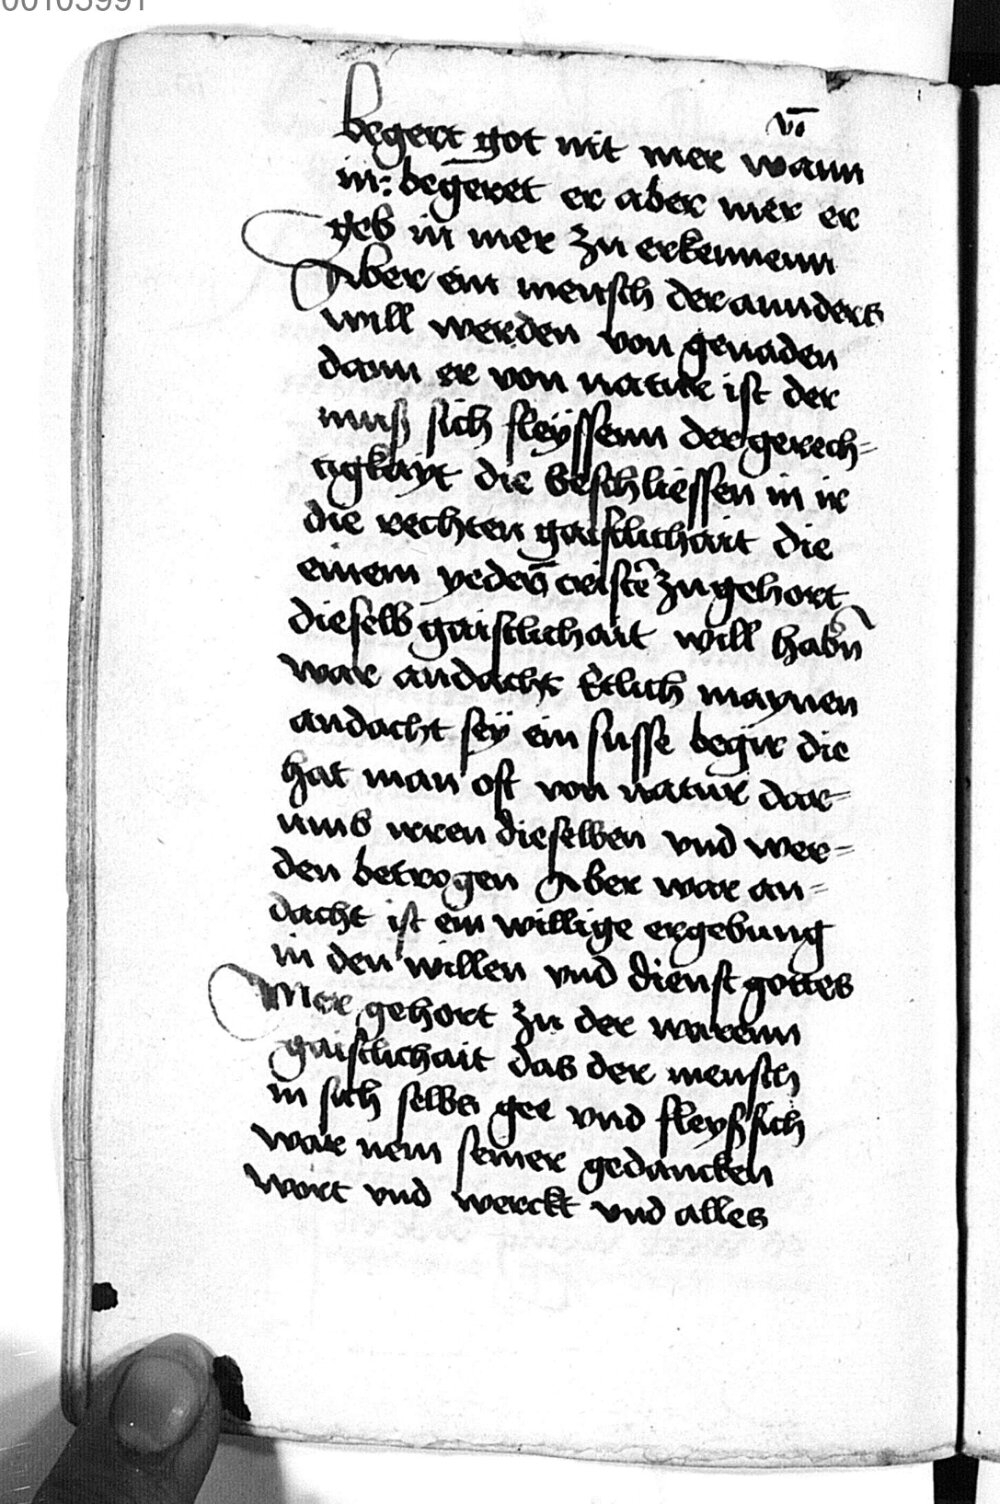 00103991
vō
begert got nit mer wann
in: begeret er aber mer er
geb in mer zu erkennenn
Aber ein mensch der annders
will werden von genaden
dann er von natur ist der
muß sich fleÿssenn der gerech=
tigkayt die beschliessen in ir
die rechten gaistlichait die
einem yedeñ cristē zu gehort
dieselb gaistlichait will habñ
war andacht Etlich maynen
andacht seÿ ein susse begir die
hat man oft von natur dar=
umb irren dieselben vnd wer=
den betrogen Aber war an=
dacht ist ein willige ergebung
in den willen vnd dienst gottes
Mer gehort zu der warenn
gaistlichait das der mensch
in sich selbs gee vnd fleyß sich
war nem seiner gedancken
wort vnd werckt vnd alles